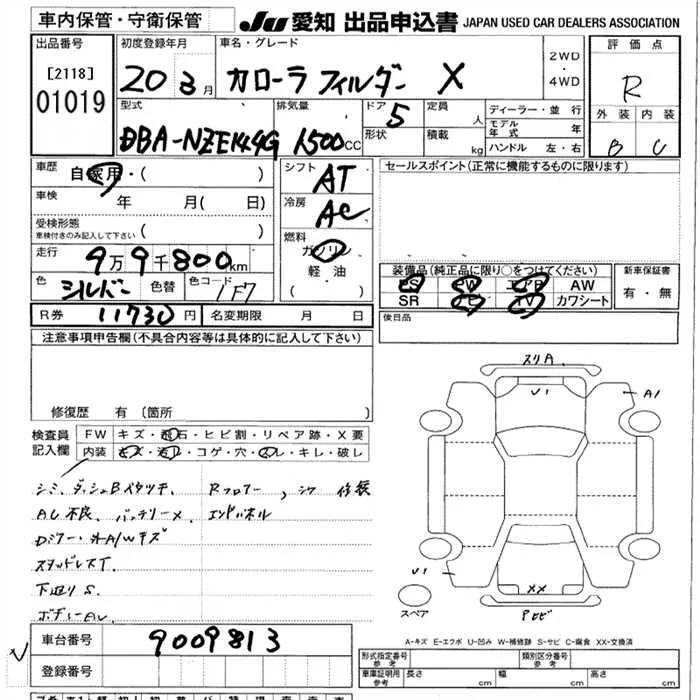 車内保管・守衛保管
JU 愛知 出品申込書 JAPAN USED CAR DEALERS ASSOCIATION
出品番号 [2118] 01019
初度登録年月 20 3月
車名・グレード カローラ フィルダー X
2WD・4WD
評価点 R
外装 B 内装 C
型式 DBA-NZE144G
排気量 1500cc
ドア 5 形状
定員 人 積載 kg
ディーラー・並行
モデル年式 年
ハンドル 左・右
車歴 自家用・( )
車検 年 月( 日)
受検形態 車検付きのみ記入して下さい ( )
走行 9万9千800km
色 シルバー 色替 色コード 1F7
シフト AT
冷房 AC
燃料 ガソリン 軽油 ( )
セールスポイント(正常に機能するものに限ります)
装備品(純正品に限り○をつけてください)
PS PW エアB AW
SR ナビ TV カワシート
新車保証書 有・無
後日品
R券 11730円 名変期限 月 日
注意事項申告欄(不具合内容等は具体的に記入して下さい)
修復歴 有(箇所 )
検査員記入欄
FW キズ・飛石・ヒビ割・リペア跡・X要
内装 キズ・汚レ・コゲ・穴・スレ・キレ・破レ
シミ、ダッシュBベタツキ、Rフロアー、シワ 修復
AC不良、バッテリーX、エンドパネル
Dミラー・外A/Wキズ
スタッドレスT.
下廻りS.
ボディーAU.
スリA
U1
A1
U1
XX
Pロビ
スペア
A-キズ E-エクボ U-凹み W-補修跡 S-サビ C-腐食 XX-交換済
車台番号 9009813
登録番号
形式指定番号 参考
類別区分番号 参考
車庫証明用 参考 長さ cm 幅 cm 高さ cm